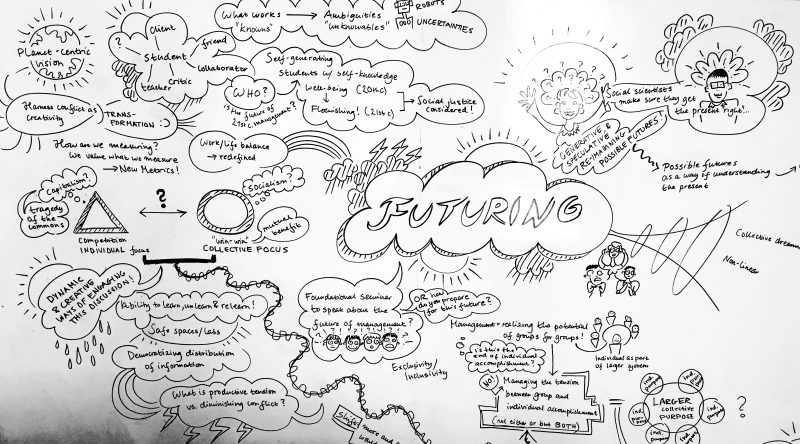 What works → Ambiguities
"knowns" "unknowables"
ROBOTS
UNCERTAINTIES
Planet-centric
vision
client
?
student
friend
teacher
critic
collaborator
Self-generating
students w/ self-knowledge
well-being (20thC)
Flourishing! (21stC)
Social justice
considered!
WHO?
is the future of
21st c. management?
Social scientists
make sure they get
the present right"...
GENERATIVE &
SPECULATIVE
RE-IMAGINING
POSSIBLE FUTURES!
Possible futures
as a way of understanding
the present
Harness conflict as
creativity
TRANS-
FORMATION :)
How are we measuring?
We value what we measure
→ New Metrics!
Work/life balance
→ redefined
Capitalism?
tragedy
of the
commons
?
Socialism?
mutual
benefit
Competition
INDIVIDUAL focus
"win-win"
COLLECTIVE FOCUS
FUTURING
Collective
Non-linear
DYNAMIC
& CREATIVE
WAYS OF ENGAGING
THIS DISCUSSION!
Ability to learn, unlearn & relearn!
Safe spaces/labs
Democratizing distribution
of information
What is productive tension
vs. diminishing conflict?
Foundational seminar
to speak about the
future of management?
OR how
do you prepare
for this future?
Exclusivity/
Inclusivity
Management = realizing the potential
of groups for groups!
is this the
end of individual
accomplishment?
NO!
Managing the tension
between group and
individual accomplishment
(not either or but BOTH)
Individual as part
of larger system
=
LARGER
collective
PURPOSE
?
Shift